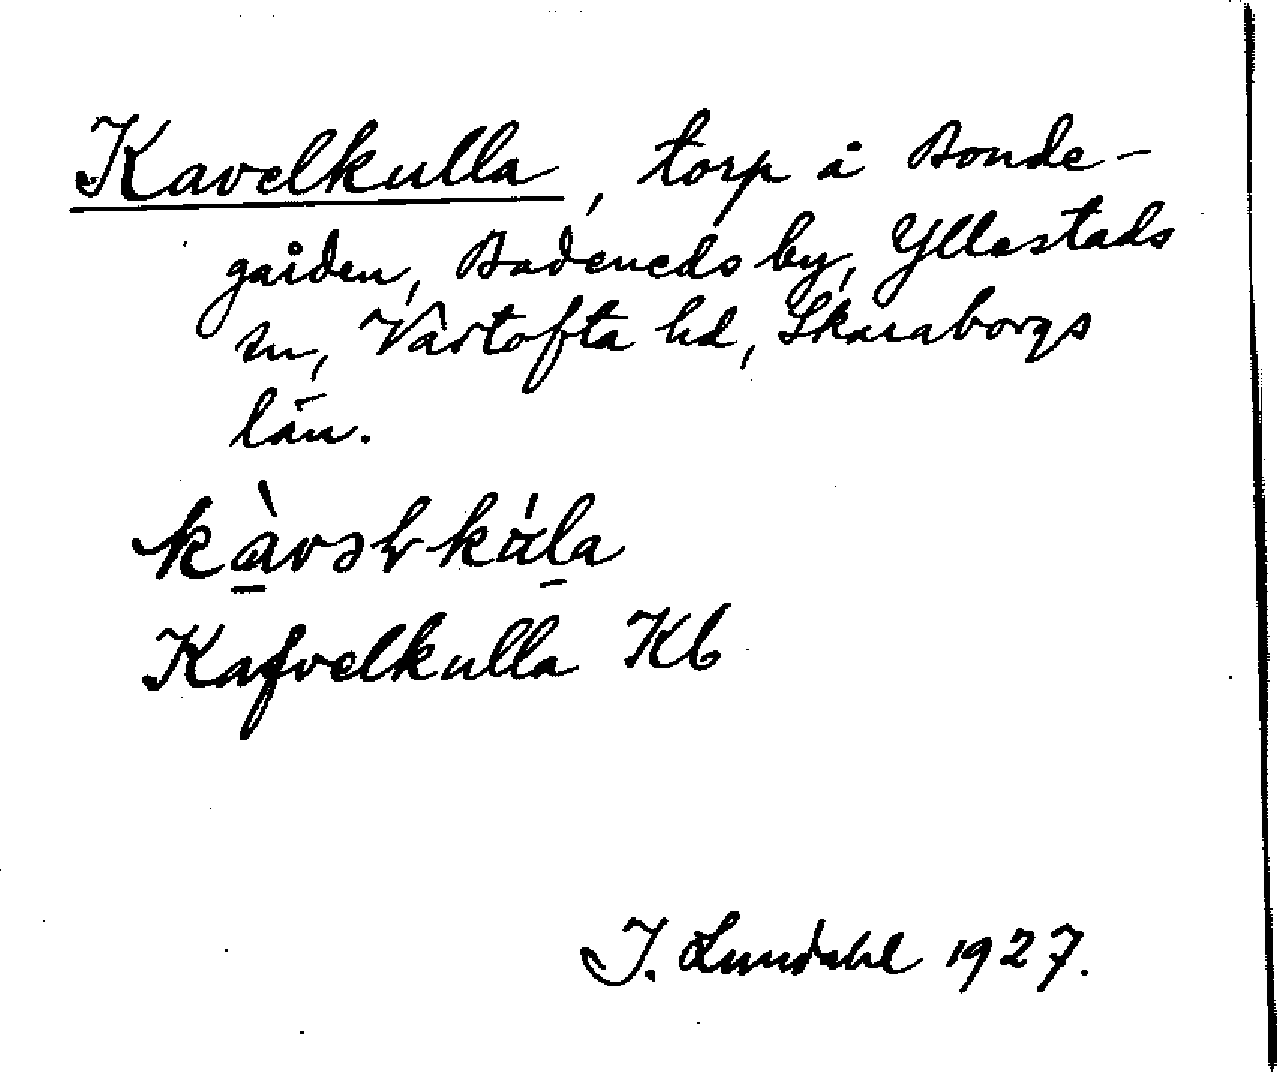 Kavelkulla, torp å Bonde-
gården, Badeneds by, Yllestads
sn, Vartofta hd, Skaraborgs
län.
Kafvelkulla Kb
I. Lundahl 1927.